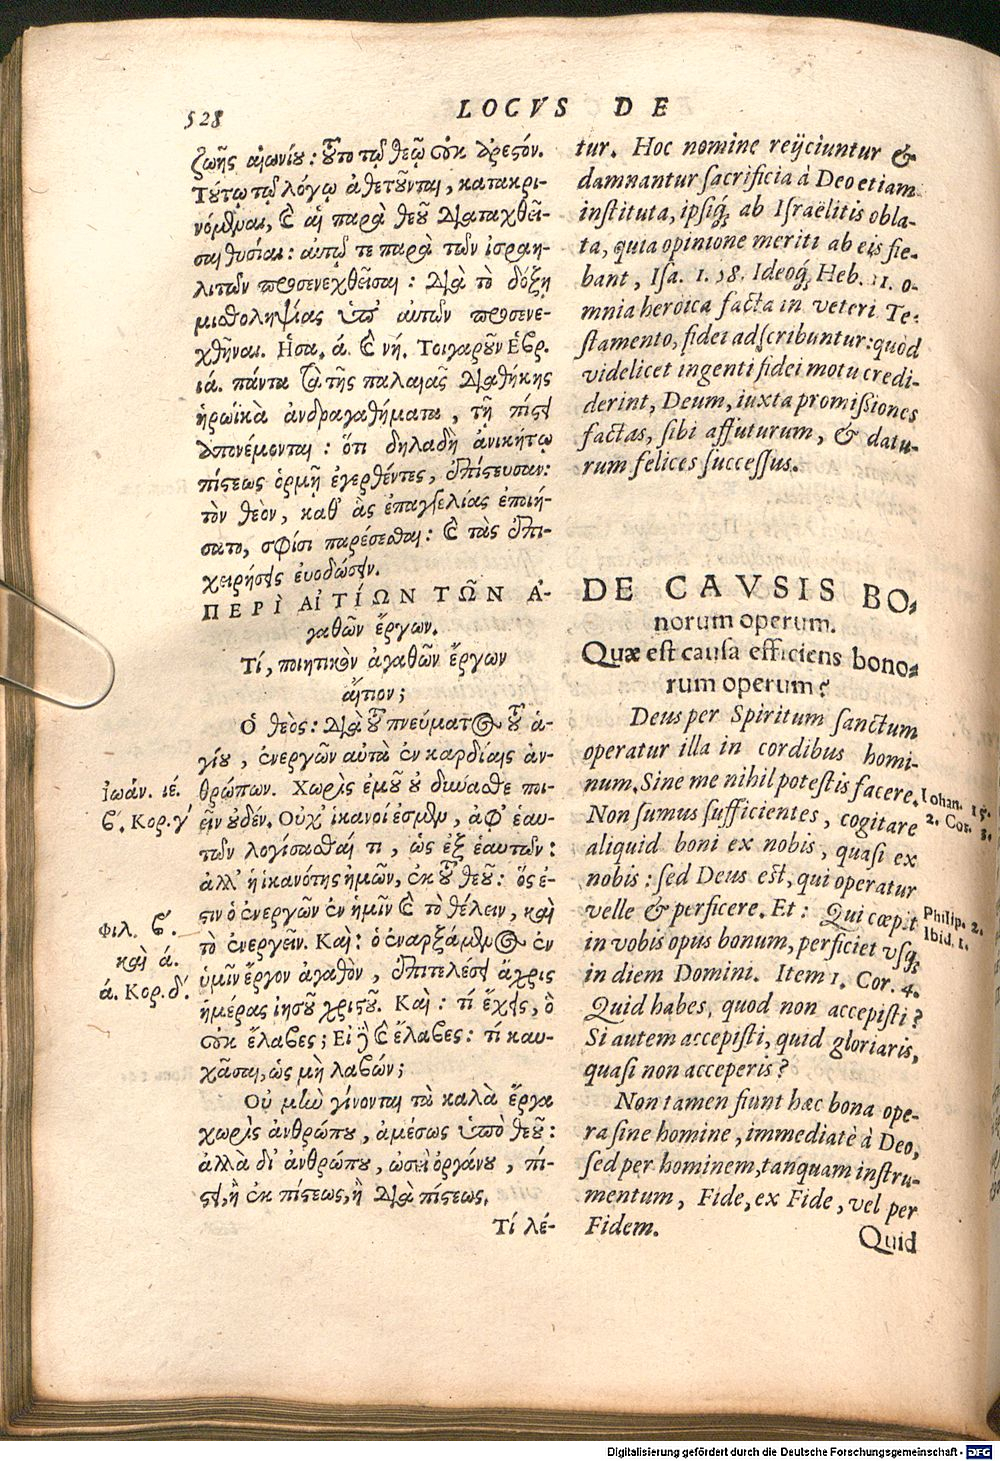 528
LOCVS DE
ζωῆς αἰωνίου: τοῦτο τῷ θεῷ οὐκ ἀρεςόν.
Τούτῳ τῷ λόγῳ ἀθετοῦνται, κατακρι-
νόμεναι, καὶ αἱ παρὰ θεοῦ διαταχθεῖ-
σαι θυσίαι: αὐτῷ τε παρὰ τῶν ἰσραη-
λιτῶν προσενεχθεῖσαι: διὰ τὸ δόξῃ
μισθοληψίας ὑπ' αὐτῶν προσενε-
χθῆναι. Ησα. ά. καὶ νή. Τοιγαροῦν Ἑβρ.
ιά. πάντα τὰ τῆς παλαιᾶς διαθήκης
ἡρωϊκὰ ἀνδραγαθήματα, τῇ πίςει
ἀπονέμονται: ὅτι δηλαδὴ ἀνικήτῳ
πίςεως ὁρμῇ ἐγερθέντες, ἐπίςευσαν:
τὸν θεὸν, καθ' ἃς ἐπαγγελίας ἐποιή-
σατο, σφίσι παρέσεσθαι: καὶ τὰς ἐπι-
χειρήσεις εὐοδώσειν.
ΠΕΡΙ ΑΙΤΙΩΝ ΤΩΝ Α-
γαθῶν ἔργων.
Τί, ποιητικὸν ἀγαθῶν ἔργων
αἴτιον;
Ὁ θεὸς: διὰ τοῦ πνεύματος τοῦ ἁ-
γίου, ἐνεργῶν αὐτὰ ἐν καρδίαις ἀν-
θρώπων. Χωρὶς ἐμοῦ οὐ δύνασθε ποι-
εῖν οὐδέν. Οὐχ' ἱκανοί ἐσμεν, ἀφ' ἑαυ-
τῶν λογίσασθαί τι, ὡς ἐξ ἑαυτῶν:
ἀλλ' ἡ ἱκανότης ἡμῶν, ἐκ τοῦ θεοῦ: ὅς ἐ-
ςιν ὁ ἐνεργῶν ἐν ἡμῖν καὶ τὸ θέλειν, καὶ
τὸ ἐνεργεῖν. Καὶ: ὁ ἐναρξάμενος ἐν
ὑμῖν ἔργον ἀγαθὸν, ἐπιτελέσει ἄχρις
ἡμέρας ἰησοῦ χριςοῦ. Καὶ: τί ἔχεις, ὃ
οὐκ ἔλαβες; Εἰ δὲ καὶ ἔλαβες: τί καυ-
χᾶσαι, ὡς μὴ λαβών;
Οὐ μὲν γίνονται τὰ καλὰ ἔργα
χωρὶς ἀνθρώπου, ἀμέσως ὑπὸ θεοῦ:
ἀλλὰ δι' ἀνθρώπου, ὡσεὶ ὀργάνου, πί-
ςει, ἢ ἐκ πίςεως, ἢ διὰ πίςεως.
Τί λέ-
Ἰωάν. ιέ.
β'. Κορ. γ'
Φιλ. β'.
καὶ ά.
ά. Κορ. δ'.
tur. Hoc nomine reijciuntur &
damnantur sacrificia à Deo etiam
instituta, ipsiq́; ab Israëlitis obla-
ta, quia opinione meriti ab eis fie-
bant, Isa. 1. 58. Ideoq́; Heb. 11. o-
mnia heroica facta in veteri Te-
stamento, fidei adscribuntur: quòd
videlicet ingenti fidei motu credi-
derint, Deum, iuxta promissiones
factas, sibi affuturum, & datu-
rum felices successus.
DE CAVSIS BO-
norum operum.
Quæ est causa efficiens bono-
rum operum?
Deus per Spiritum sanctum
operatur illa in cordibus homi-
num. Sine me nihil potestis facere.
Non sumus sufficientes, cogitare
aliquid boni ex nobis, quasi ex
nobis: sed Deus est, qui operatur
velle & perficere. Et: Qui cœpit
in vobis opus bonum, perficiet vsq́;
in diem Domini. Item 1. Cor. 4.
Quid habes, quod non accepisti?
Si autem accepisti, quid gloriaris,
quasi non acceperis?
Non tamen fiunt hæc bona ope-
ra sine homine, immediatè à Deo,
sed per hominem, tanquam instru-
mentum, Fide, ex Fide, vel per
Fidem.
Quid
Iohan. 15.
2. Cor. 3.
Philip. 2.
Ibid. 1.
Digitalisierung gefördert durch die Deutsche Forschungsgemeinschaft - DFG